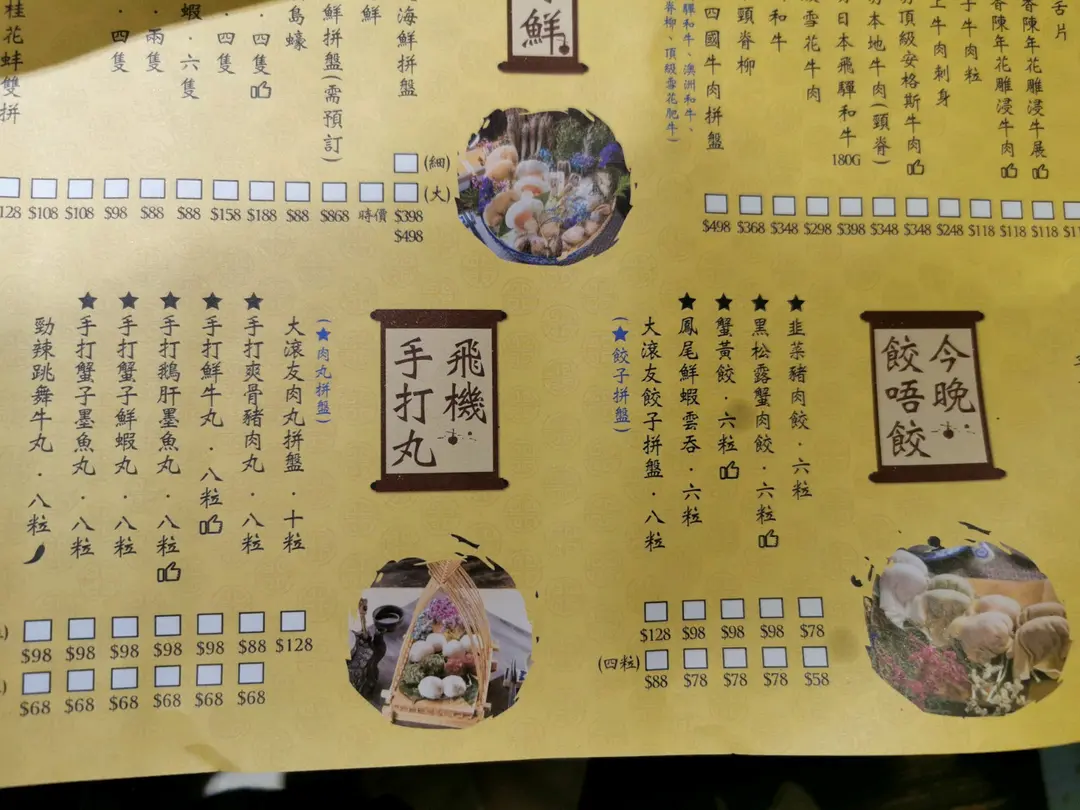 舌片
香陳年花雕浸牛展
香陳年花雕浸牛肉
子牛肉粒
上牛肉刺身
頂級安格斯牛肉
本地牛肉(頸脊)
日本飛驒和牛180G
雪花牛肉
和牛
頸脊柳
四國牛肉拼盤
驒和牛、澳洲和牛、
脊柳、頂級雪花肥牛)
$498 $368 $348 $298 $398 $348 $348 $248 $118 $118 $118
鮮
海鮮拼盤
鮮
鮮拼盤(需預訂)
島蠔
·四隻
·四隻
蝦·六隻
·兩隻
·四隻
桂花蚌雙拼
(細)
(大)
128 $108 $108 $98 $88 $88 $158 $188 $88 $868 時價 $398
$498
今晚
餃唔餃
★韭菜豬肉餃·六粒
★黑松露蟹肉餃·六粒
★蟹黃餃·六粒
★鳳尾鮮蝦雲吞·六粒
大滾友餃子拼盤·八粒
(★餃子拼盤)
$128 $98 $98 $98 $78
(四粒)
$88 $78 $78 $78 $58
飛機
手打丸
(★肉丸拼盤)
大滾友肉丸拼盤·十粒
★手打爽骨豬肉丸·八粒
★手打鮮牛丸·八粒
★手打鵝肝墨魚丸·八粒
★手打蟹子鮮蝦丸·八粒
★手打蟹子墨魚丸·八粒
勁辣跳舞牛丸·八粒
$98 $98 $98 $98 $98 $88 $128
$68 $68 $68 $68 $68 $68